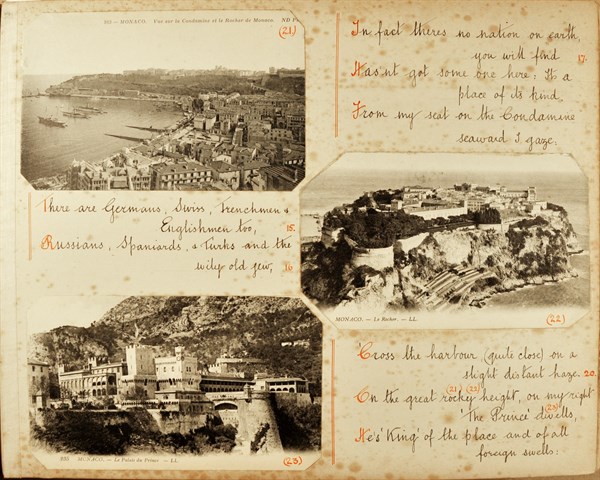 535 - MONACO. - Vue sur la Condamine et le Rocher de Monaco. ND
(21)
There are Germans, Swiss, Frenchmen &
Englishmen too, 15.
Russians, Spaniards, & Turks and the
wily old jew, 16
895 MONACO. - Le Palais du Prince. - LL.
(23)
In fact theres no nation on earth
you will find 17.
Hasnt got some one here: It's a
place of its kind,
From my seat on the Condamine
seaward I gaze
MONACO. - Le Rocher. - LL.
(22)
'Cross the harbour (quite close) on a
slight distant haze. 20.
(21) (22)
On the great rocky height, on my right
(23)
'The Prince' dwells,
He's 'King' of the place and of all
foreign swells: